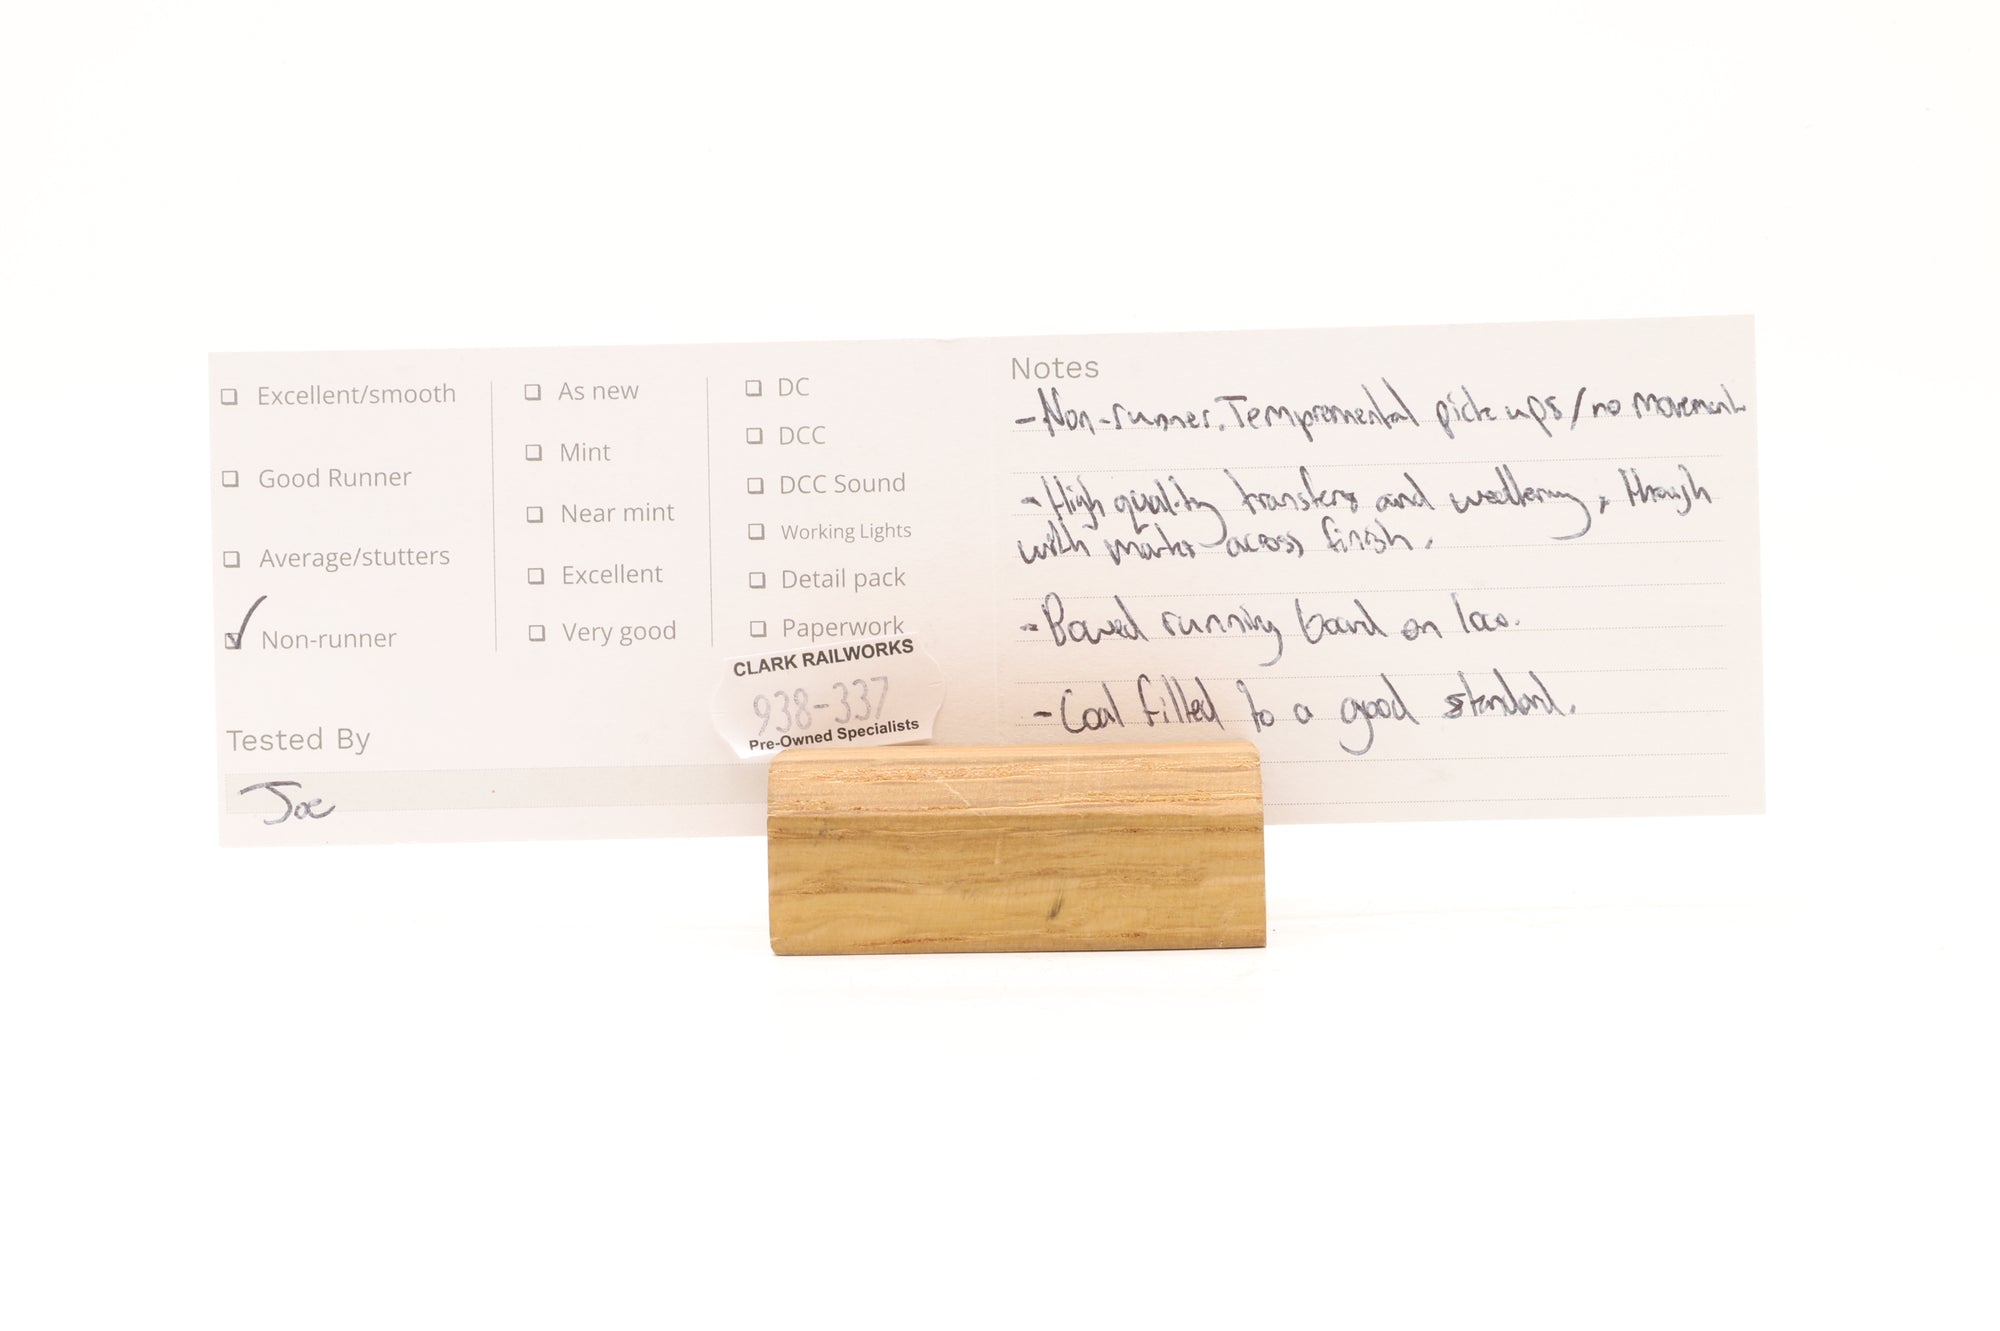 Excellent/smooth
Good Runner
Average/stutters
Non-runner
As new
Mint
Near mint
Excellent
Very good
DC
DCC
DCC Sound
Working Lights
Detail pack
Paperwork
Tested By
Joe
CLARK RAILWORKS
938-337
Pre-Owned Specialists
Notes
-Non-runner. Tempremental pick ups/no movement
-High quality transfers and weathering, though
with marks across finish.
-Bowed running board on loco.
-Coal filled to a good standard.